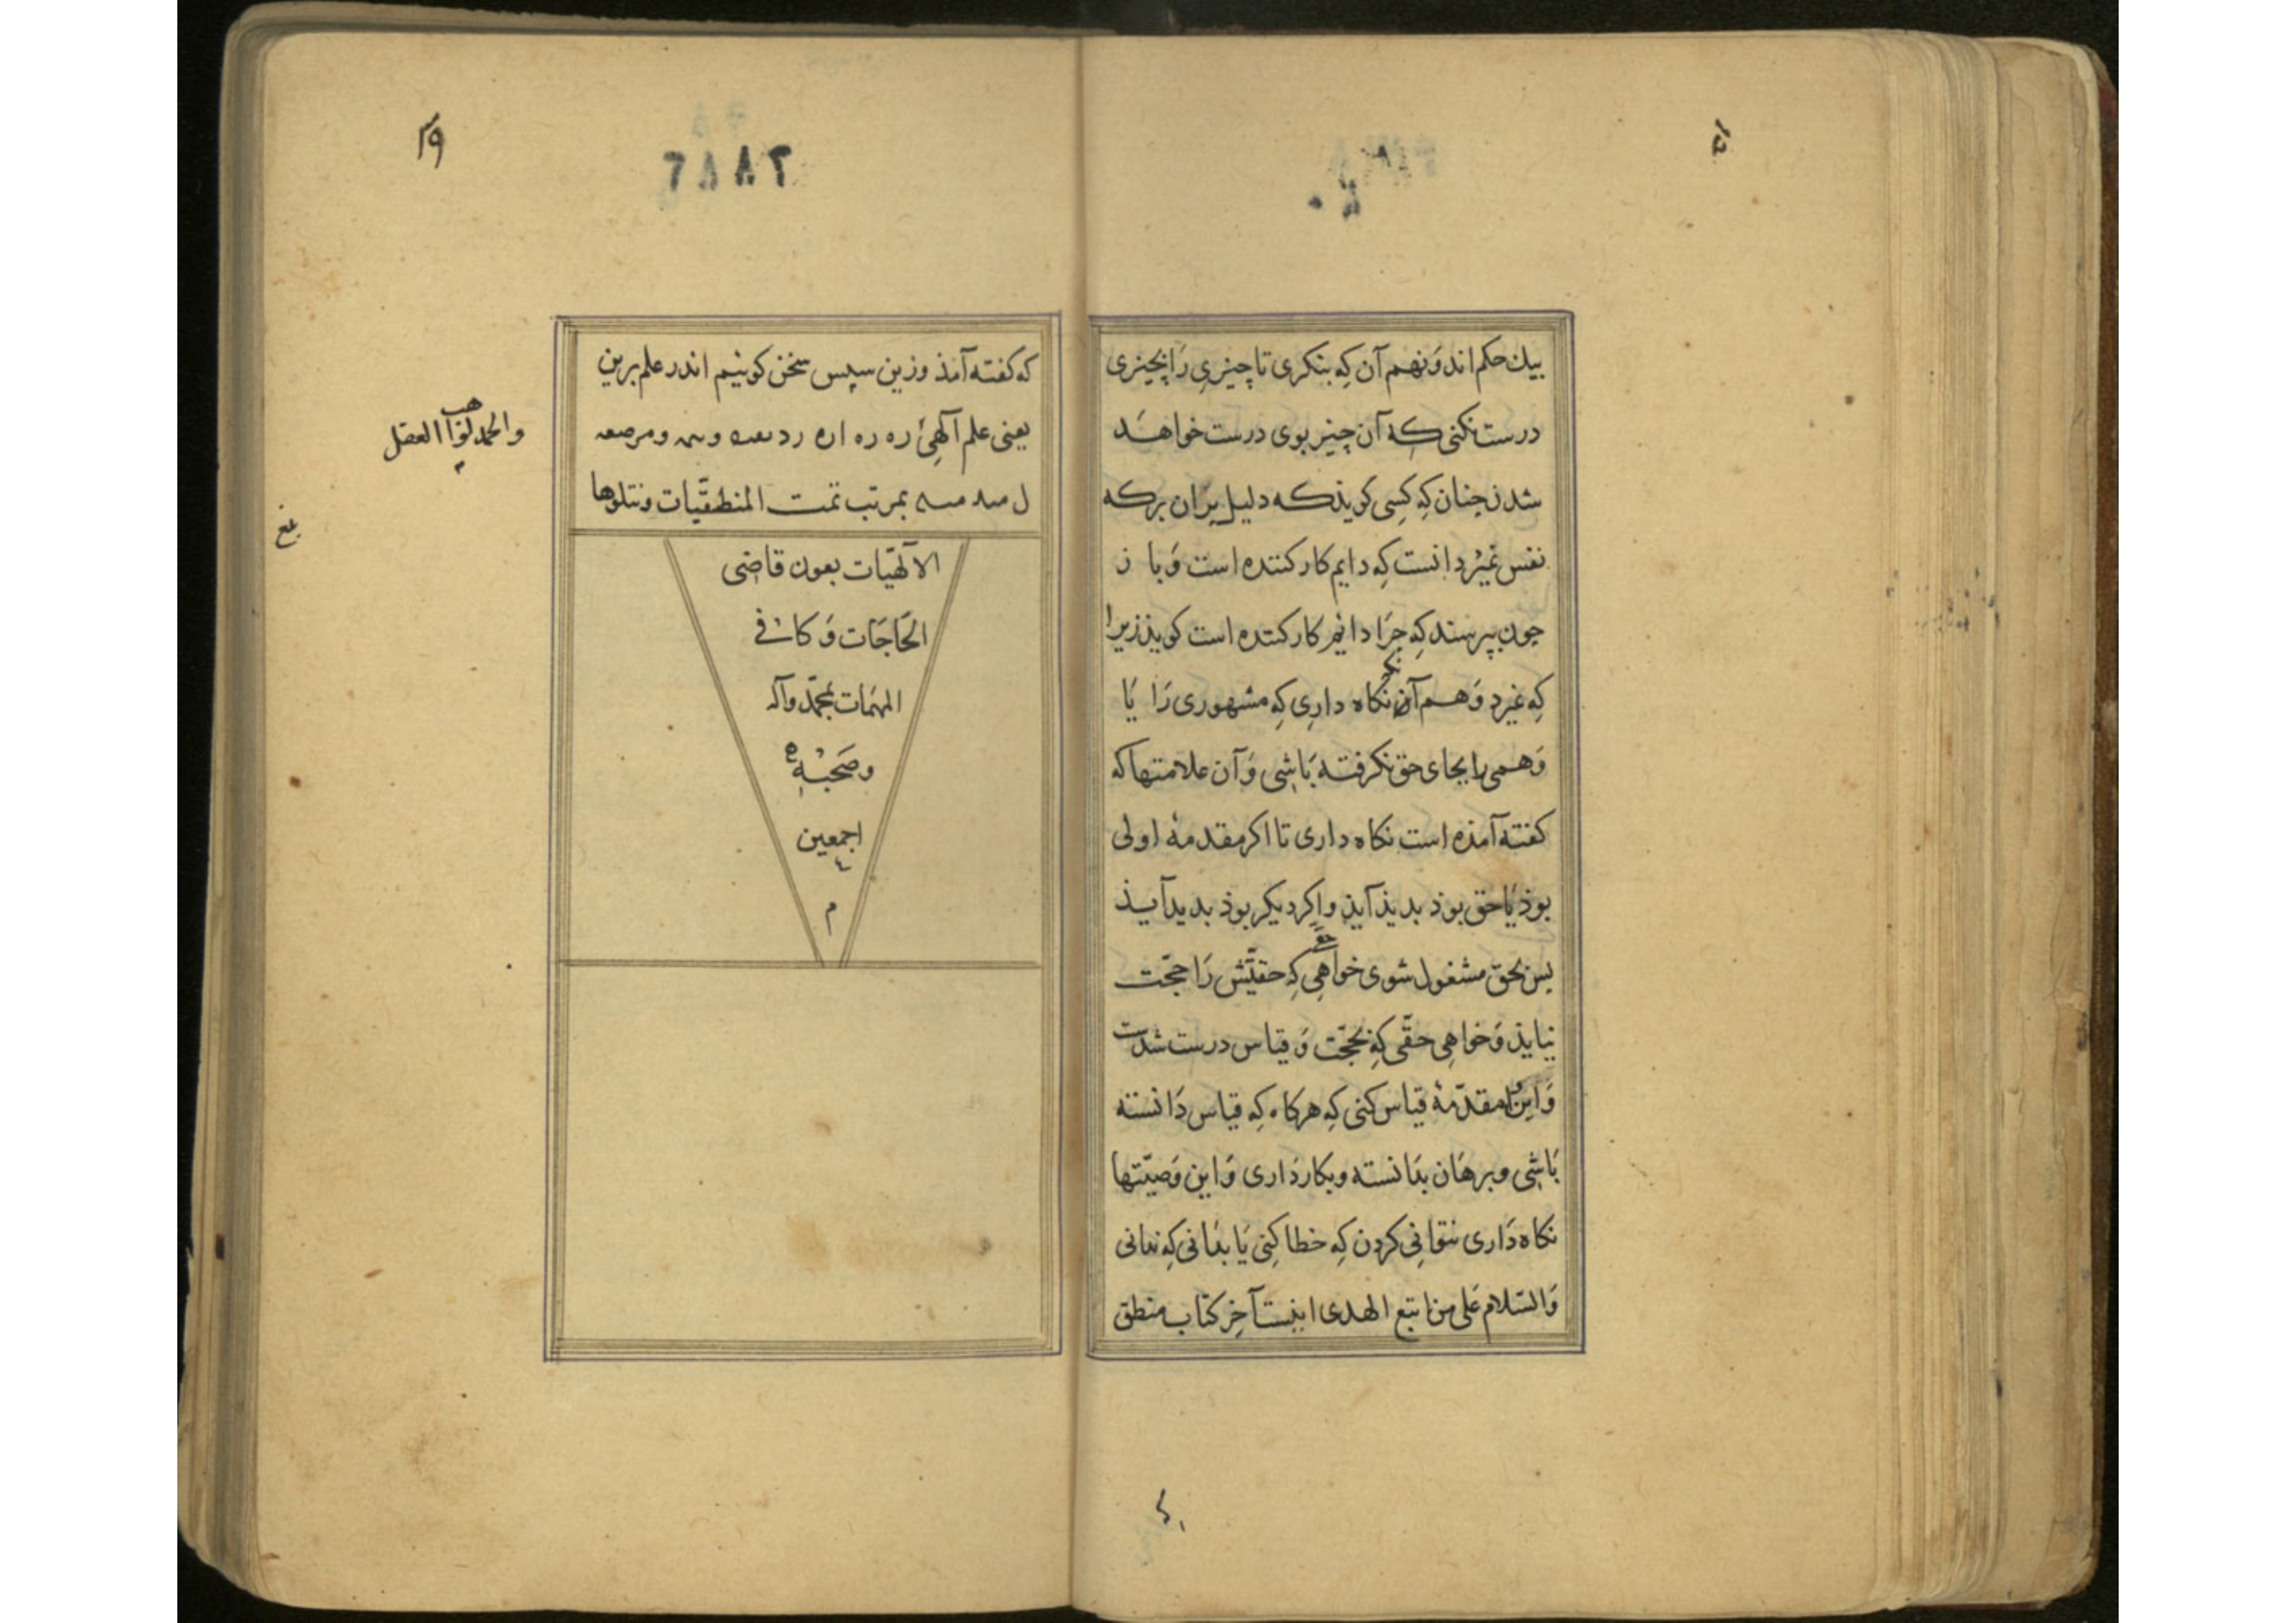 بیك حکم اند وَنهم آن کِه بنکری تا چیزیِ رَا بچیزی
درست نکنی کِه آن چیز بوی درست خواهَد
شدن چنان کِه کِسی کویذ که دلیل بران برکه
نفس نمیرد آنست کِه دایم کارکننده است وَبا ز
چون بپرسند کِه چِرَا دایم کارکننده است کویذ زیرا
کِه نمیرد وَهم آن نکاه داریِ کِه مشهوری رَا یَا
وَهمی را بجای حق نکرفته بَاشی وَآن علامتها که
کفته آمذه است نکاه داری تا اکر مقدمهٔ اولی
بوذ یَا حق بوذ بدیذ آیذ واکر دیکر بوذ بدید آیذ
بس بحق مشغول شوی خواهِی کِه حقیّش رَا حجّت
نیایذ وَخواهِی حقّی کِه بحجّت وَقیاس درست شدست
وَاین مقدّمهٔ قیاس کنی کِه هرکاه کِه قیاس دَانسته
بَاشی وبرهَان بدَانسته وبکار دَاری وَاین وَصیّتها
نکاه دَاری نتوانِی کردن کِه خطا کنِی یَا بدَانی کِه ندانی
وَالسّلام عَلی من اتبع الهدی اینست آخِر کتاب منطق
که کفته آمذ وزین سپس سخن کوئیم اندر علم برین
یعنی علم آلهِیْ ره ره اره
بمرتب تمت المنطقّیات ونتلوها
الآلهّیات بعون قاضِی
الحَاجَات وَکافی
المهّمات بمحمّد وآله
وصَحبْهِ
اجمعین
م
۳۹
والحمد لواهب العقل
بلغ
٢٨٨٦